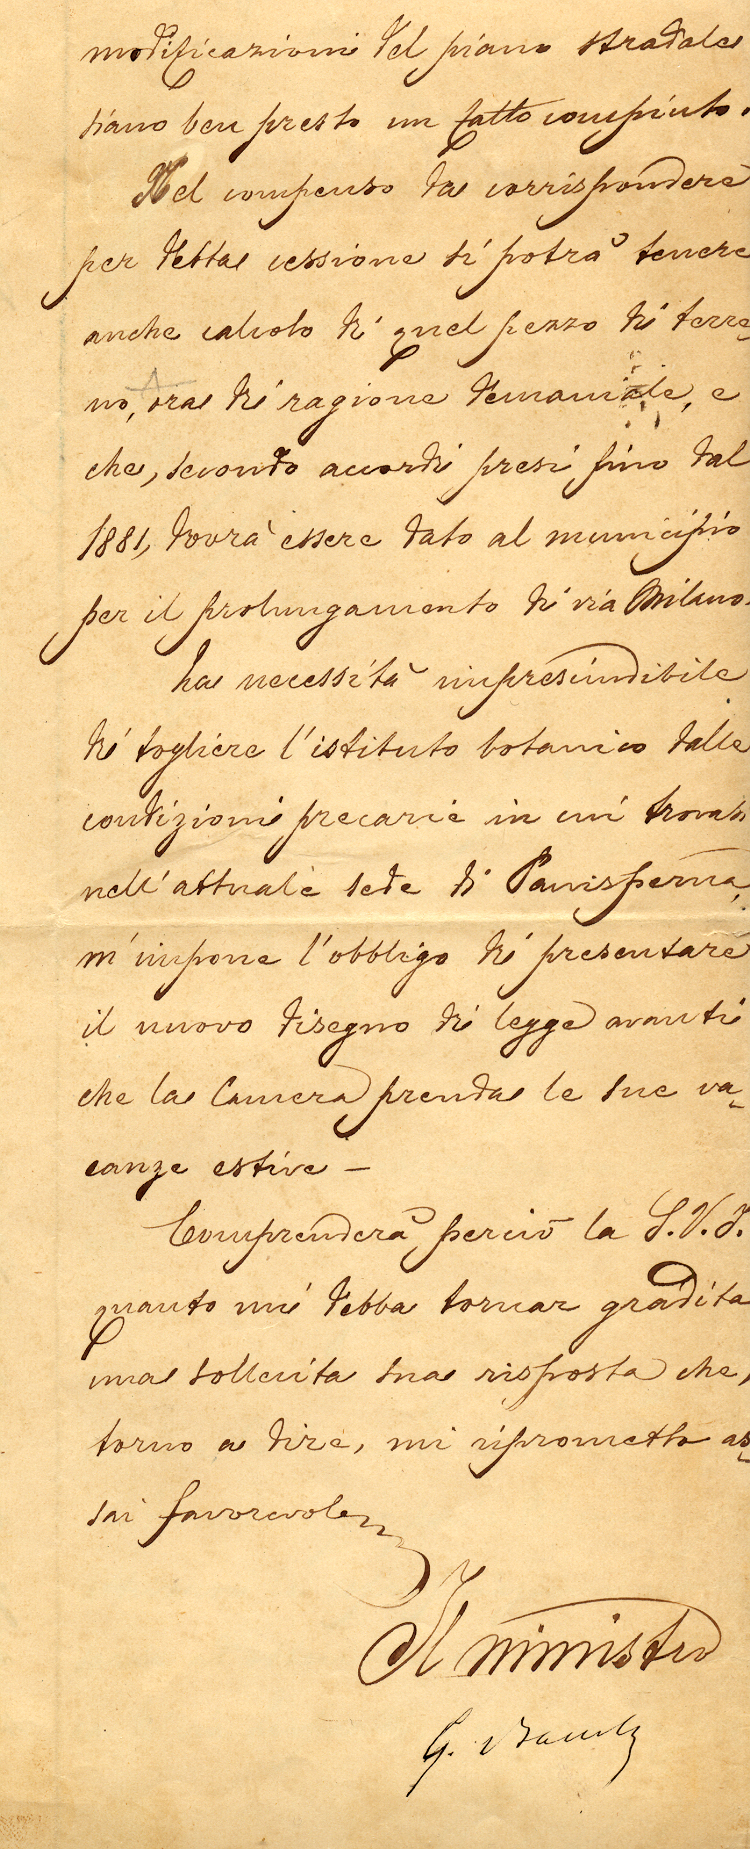 modificazioni del piano stradale
siano ben presto un fatto compiuto.
Nel compenso da corrispondere
per detta cessione si potrà tenere
anche calcolo di quel pezzo di terre-
no, ora di ragione demaniale, e
che, secondo accordi presi fino dal
1881, dovrà essere dato al municipio
per il prolungamento di via Milano.
La necessità imprescindibile
di togliere l'istituto botanico dalle
condizioni precarie in cui trovasi
nell'attuale sede di Panisperna,
m'impone l'obbligo di presentare
il nuovo disegno di legge avanti
che la Camera prenda le sue va-
canze estive –
Comprenderà perciò la S.V.I.
quanto mi debba tornar gradita
una sollecita sua risposta che,
torno a dire, mi riprometto as-
sai favorevole
Il ministro
G.